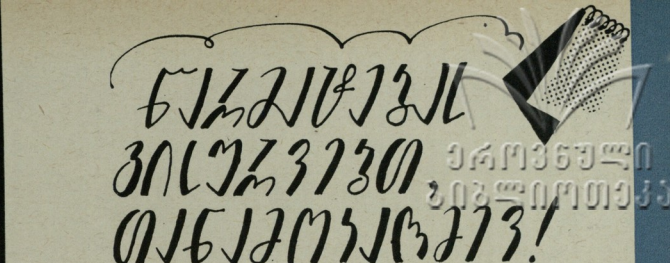 წარმატებას
გისურვებთ,
თანამოკალმევ!
ეროვნული
ბიბლიოთეკა